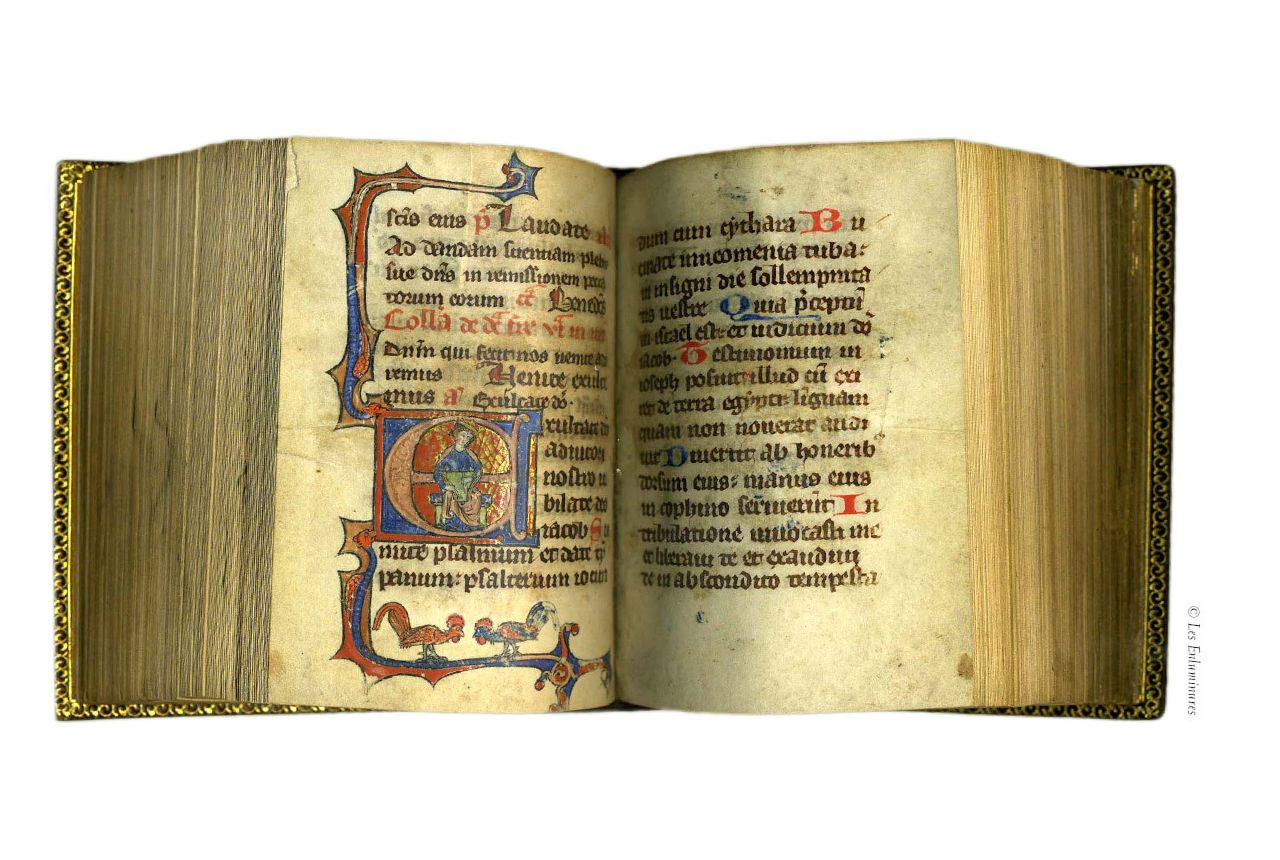 scīs eius p̄ Laudate
Ad dandam scientiam plebi
sue dn̄s in remissionem pecca
torum eorum Benedc̄
Colla de
Dn̄m qui fecit nos venite ad
remus Venite exulte
mus a᷑ Exultate dō·
Exultate do
adiutori
nostro iu
bilate deo
iacob Su
mite psalmum et date ty
panum: psalterium iocun
dum cum cythara Bu
cinate in neomenia tuba:
in insigni die sollempnita
tis vestre Quia p̄ceptū
in israel est: et iudicium dō
iacob· Testimonium in
ioseph posuit illud cū exi
ret de terra egypti: linguam
quam non noverat audi
uit Diuertit ab honerib᾽
dorsum eius: manus eius
in cophino seruierūt In
tribulatione inuocasti me
et liberaui te et exaudiui
te in abscondito tempesta
© Les Enluminures